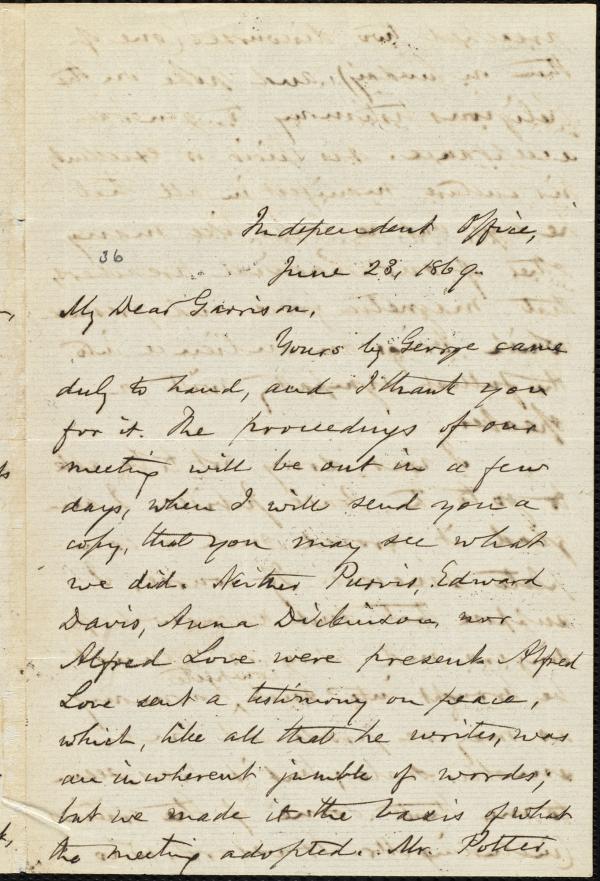 Independent Office,
36
June 28, 1869.
My Dear Garrison,
Yours by George came
duly to hand, and I thank you
for it. The proceedings of our
meeting will be out in a few
days, when I will send you a
copy, that you may see what
we did. Neither Purvis, Edward
Davis, Anna Dickinson, nor
Alfred Love were present. Alfred
Love sent a testimony on peace,
which, like all that he writes, was
an incoherent jumble of words;
but we made it the basis of what
the meeting adopted. Mr. Potter